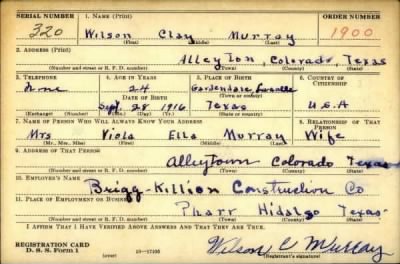 SERIAL NUMBER 1. NAME (Print) ORDER NUMBER
320 Wilson Clay Murray 1900
(First) (Middle) (Last)
2. ADDRESS (Print)
Alleyton, Colorado, Texas
(Number and street or R. F. D. number) (Town) (County) (State)
3. TELEPHONE 4. AGE IN YEARS 5. PLACE OF BIRTH 6. COUNTRY OF CITIZENSHIP
none 24 Gardendale, Lasalle
(Town) (County)
DATE OF BIRTH
Sept. 28 1916 Texas U.S.A
(Exchange) (Number) (Mo.) (Day) (Yr.) (State or country)
7. NAME OF PERSON WHO WILL ALWAYS KNOW YOUR ADDRESS 8. RELATIONSHIP OF THAT PERSON
Mrs Viola Ella Murray Wife
(Mr., Mrs., Miss) (First) (Middle) (Last)
9. ADDRESS OF THAT PERSON
Alleytown Colorado Texas
(Number and street or R. F. D. number) (Town) (County) (State)
10. EMPLOYER'S NAME
Brigg-Killian Construction Co
11. PLACE OF EMPLOYMENT OR BUSINESS
Pharr Hidalgo Texas
(Number and street or R. F. D. number) (Town) (County) (State)
I AFFIRM THAT I HAVE VERIFIED ABOVE ANSWERS AND THAT THEY ARE TRUE.
REGISTRATION CARD
D. S. S. Form 1 (over) Wilson C Murray
(Registrant's signature)